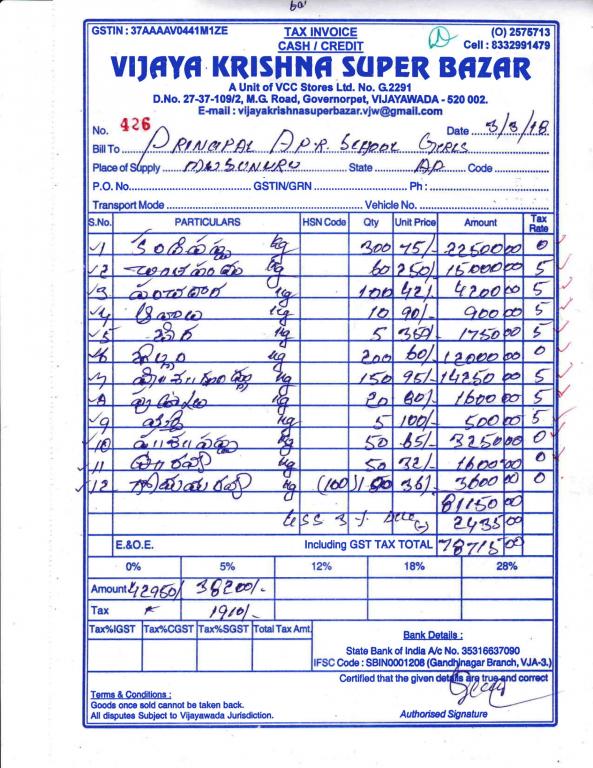 GSTIN : 37AAAAV0441M1ZE TAX INVOICE (O) 2575713
CASH / CREDIT Cell : 8332991479
VIJAYA KRISHNA SUPER BAZAR
A Unit of VCC Stores Ltd. No. G.2291
D.No. 27-37-109/2, M.G. Road, Governorpet, VIJAYAWADA - 520 002.
E-mail : vijayakrishnasuperbazar.vjw@gmail.com
No. 426 Date 3/3/18
Bill To PRINCIPAL A.P.R. SCHOOL GIRLS
Place of Supply MUSUNURU State AP Code
P.O. No. GSTIN/GRN Ph :
Transport Mode Vehicle No.
S.No. PARTICULARS HSN Code Qty Unit Price Amount Tax Rate
1 కందిపప్పు kg 300 75/- 22500 00 0
2 kg 60 250/- 15000 00 5
3 పంచదార kg 100 42/- 4200 00 5
4 kg 10 90/- 900 00 5
5 5 350/- 1750 00 5
6 kg 200 60/- 12000 00 0
7 kg 150 95/- 14250 00 5
8 kg 20 80/- 1600 00 5
9 kg 5 100/- 500 00 5
10 kg 50 65/- 3250 00 0
11 kg 50 32/- 1600 00 0
12 kg (100) 36/- 3600 00 0
81150 00
Less 3 % 2435 00
E.&O.E. Including GST TAX TOTAL 78715 00
0% 5% 12% 18% 28%
Amount 42950/ 38200/-
Tax 1910/-
Tax%IGST Tax%CGST Tax%SGST Total Tax Amt.
Bank Details :
State Bank of India A/c No. 35316637090
IFSC Code : SBIN0001208 (Gandhinagar Branch, VJA-3.)
Certified that the given details are true and correct
Terms & Conditions :
Goods once sold cannot be taken back.
All disputes Subject to Vijayawada Jurisdiction.
Authorised Signature